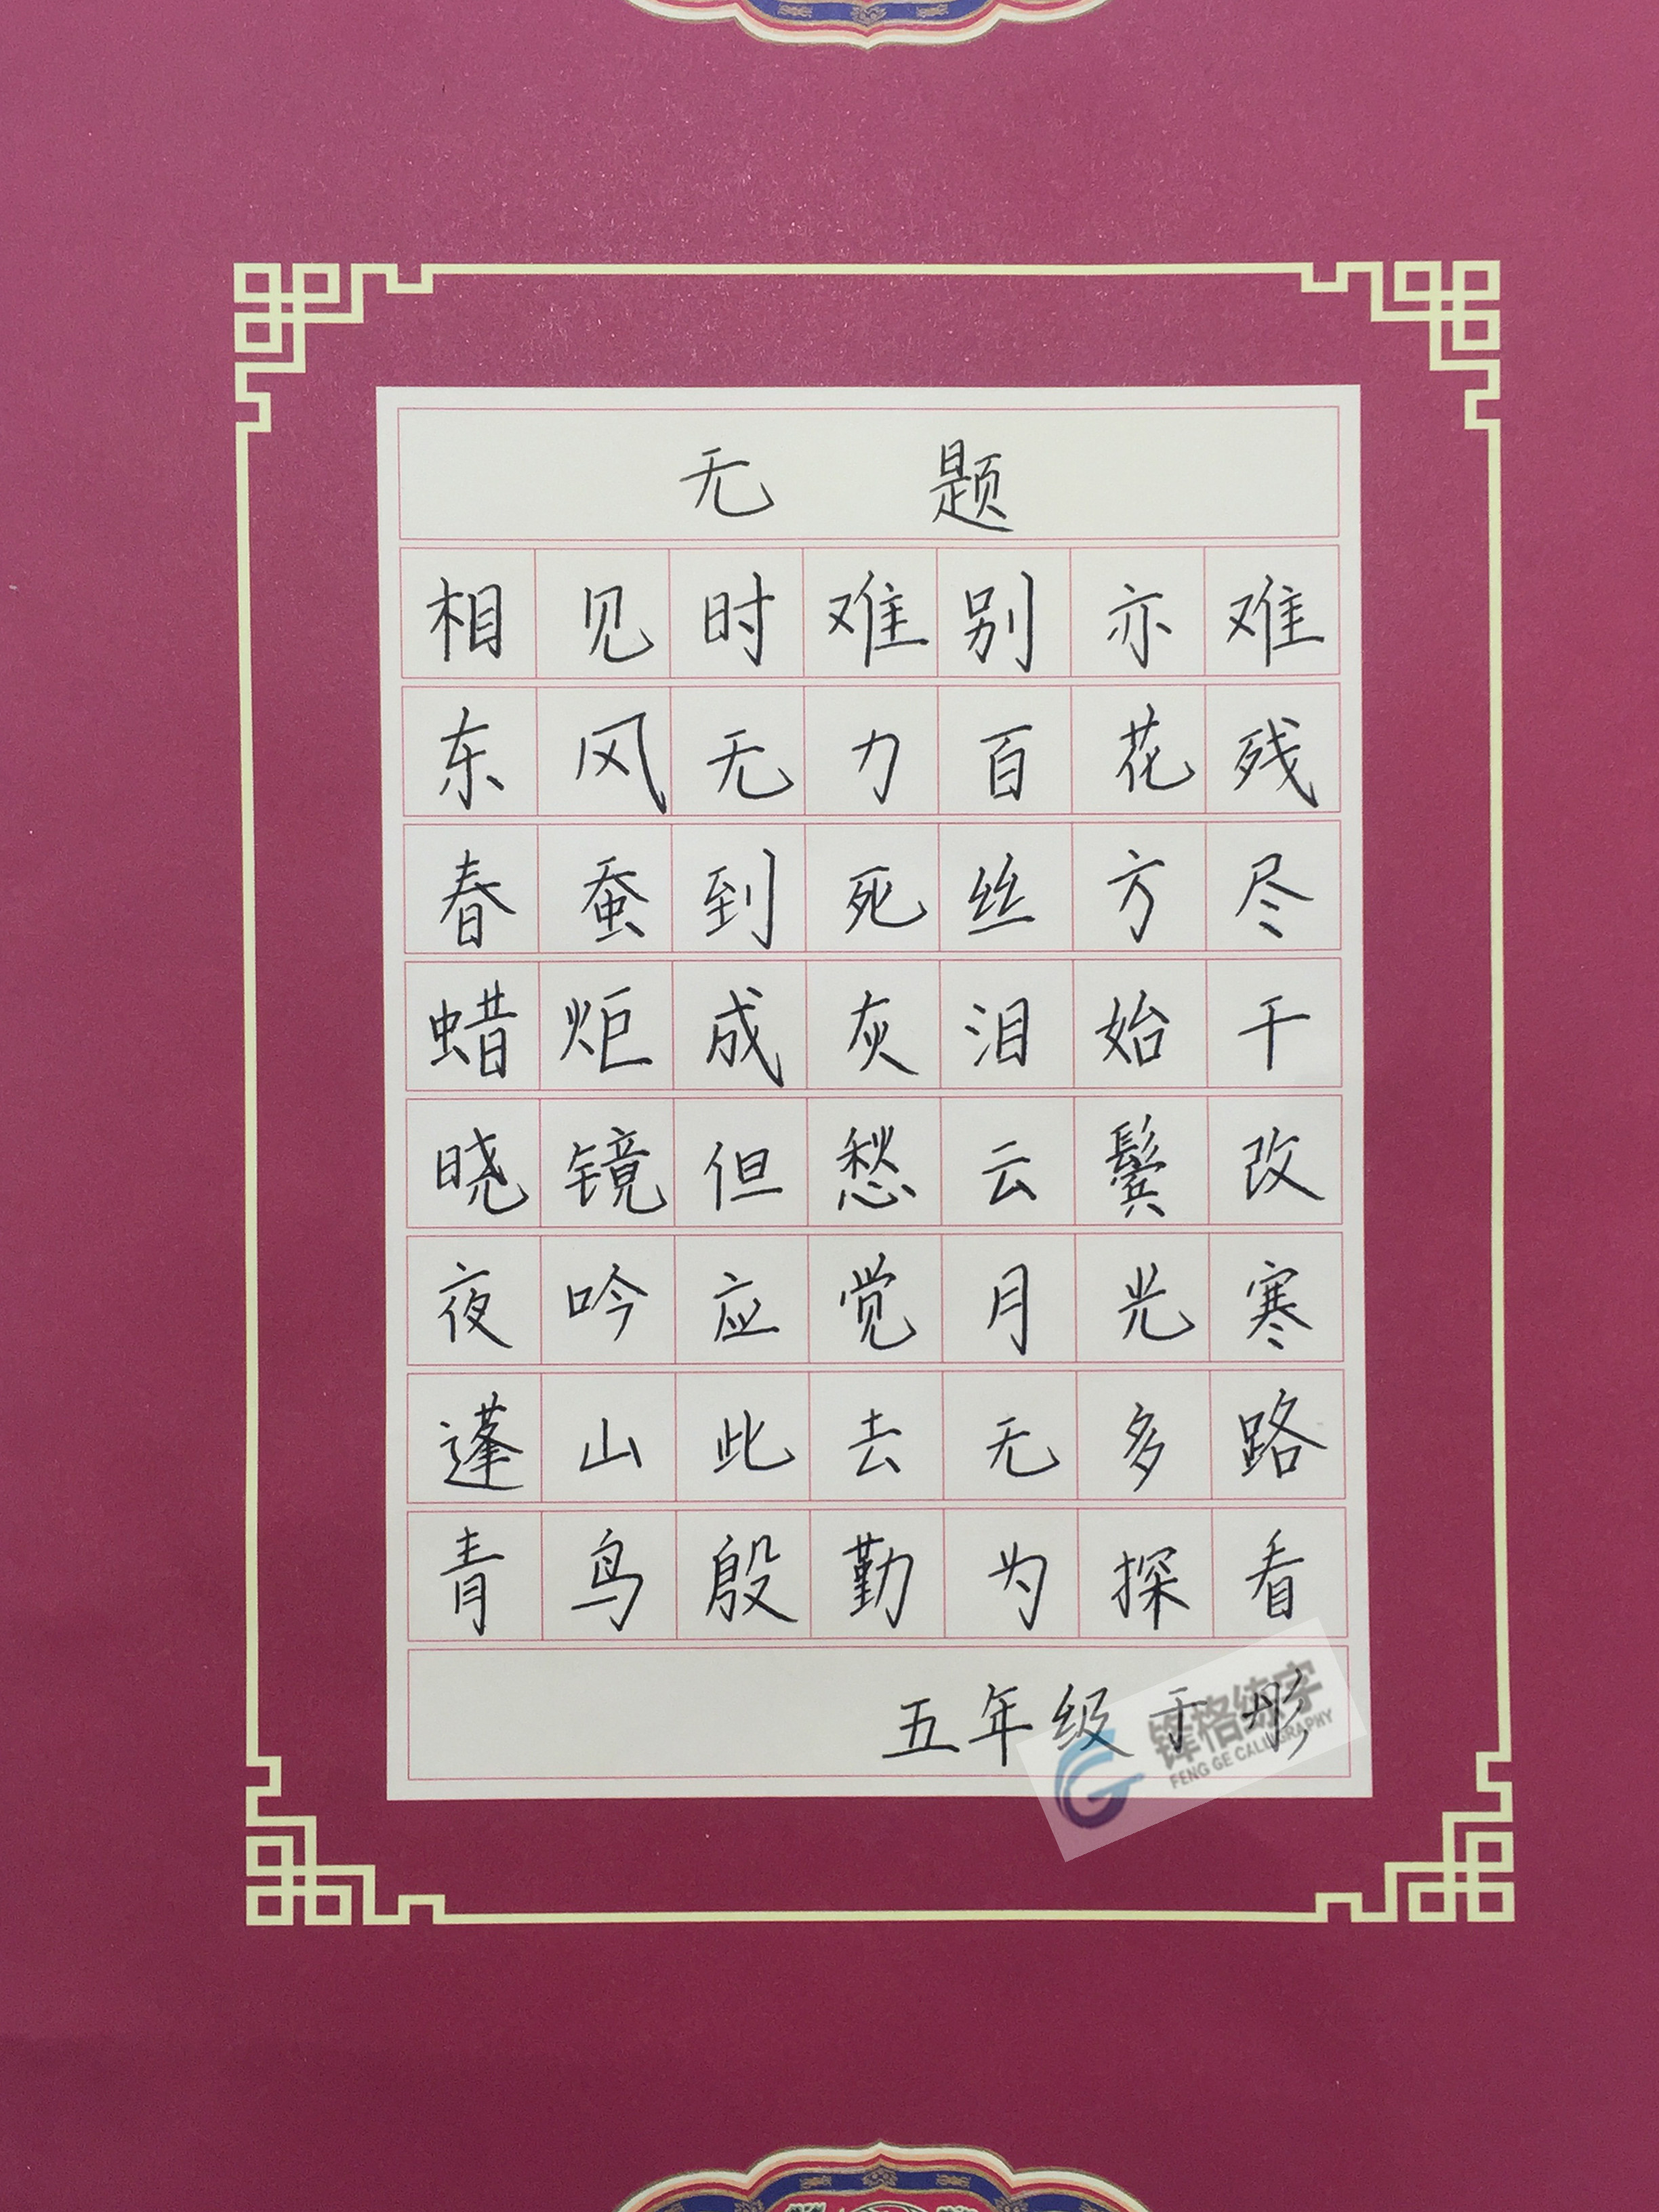 无 题
相见时难别亦难
东风无力百花残
春蚕到死丝方尽
蜡炬成灰泪始干
晓镜但愁云鬓改
夜吟应觉月光寒
蓬山此去无多路
青鸟殷勤为探看
五年级于彤
锋格练字
FENG GE CALLIGRAPHY